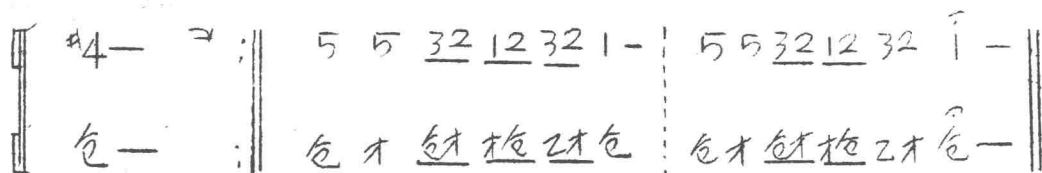 #4— :‖ 5 5 32 12 32 1 - ┊ 5 5 32 12 32 1 — ‖
仓— :‖ 仓 才 仓才 才仓 乙才 仓 ┊ 仓 才 仓才 才仓 乙才 仓— ‖